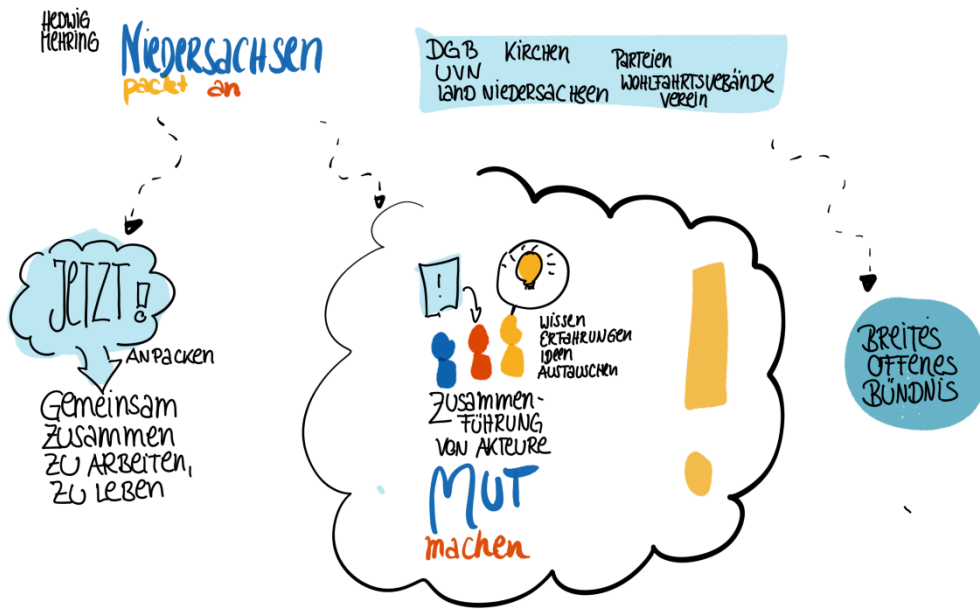 HEDWIG
MEHRING
NIEDERSACHSEN
packt an
DGB KIRCHEN PARTEIEN
UVN WOHLFAHRTSVEBÄNDE
LAND NIEDERSACHSEN VEREIN
JETZT!
ANPACKEN
GEMEINSAM
ZUSAMMEN
ZU ARBEITEN,
ZU LEBEN
!
WISSEN
ERFAHRUNGEN
IDEEN
AUSTAUSCHEN
ZUSAMMEN-
FÜHRUNG
VON AKTEURE
MUT
machen
!
BREITES
OFFENES
BÜNDNIS